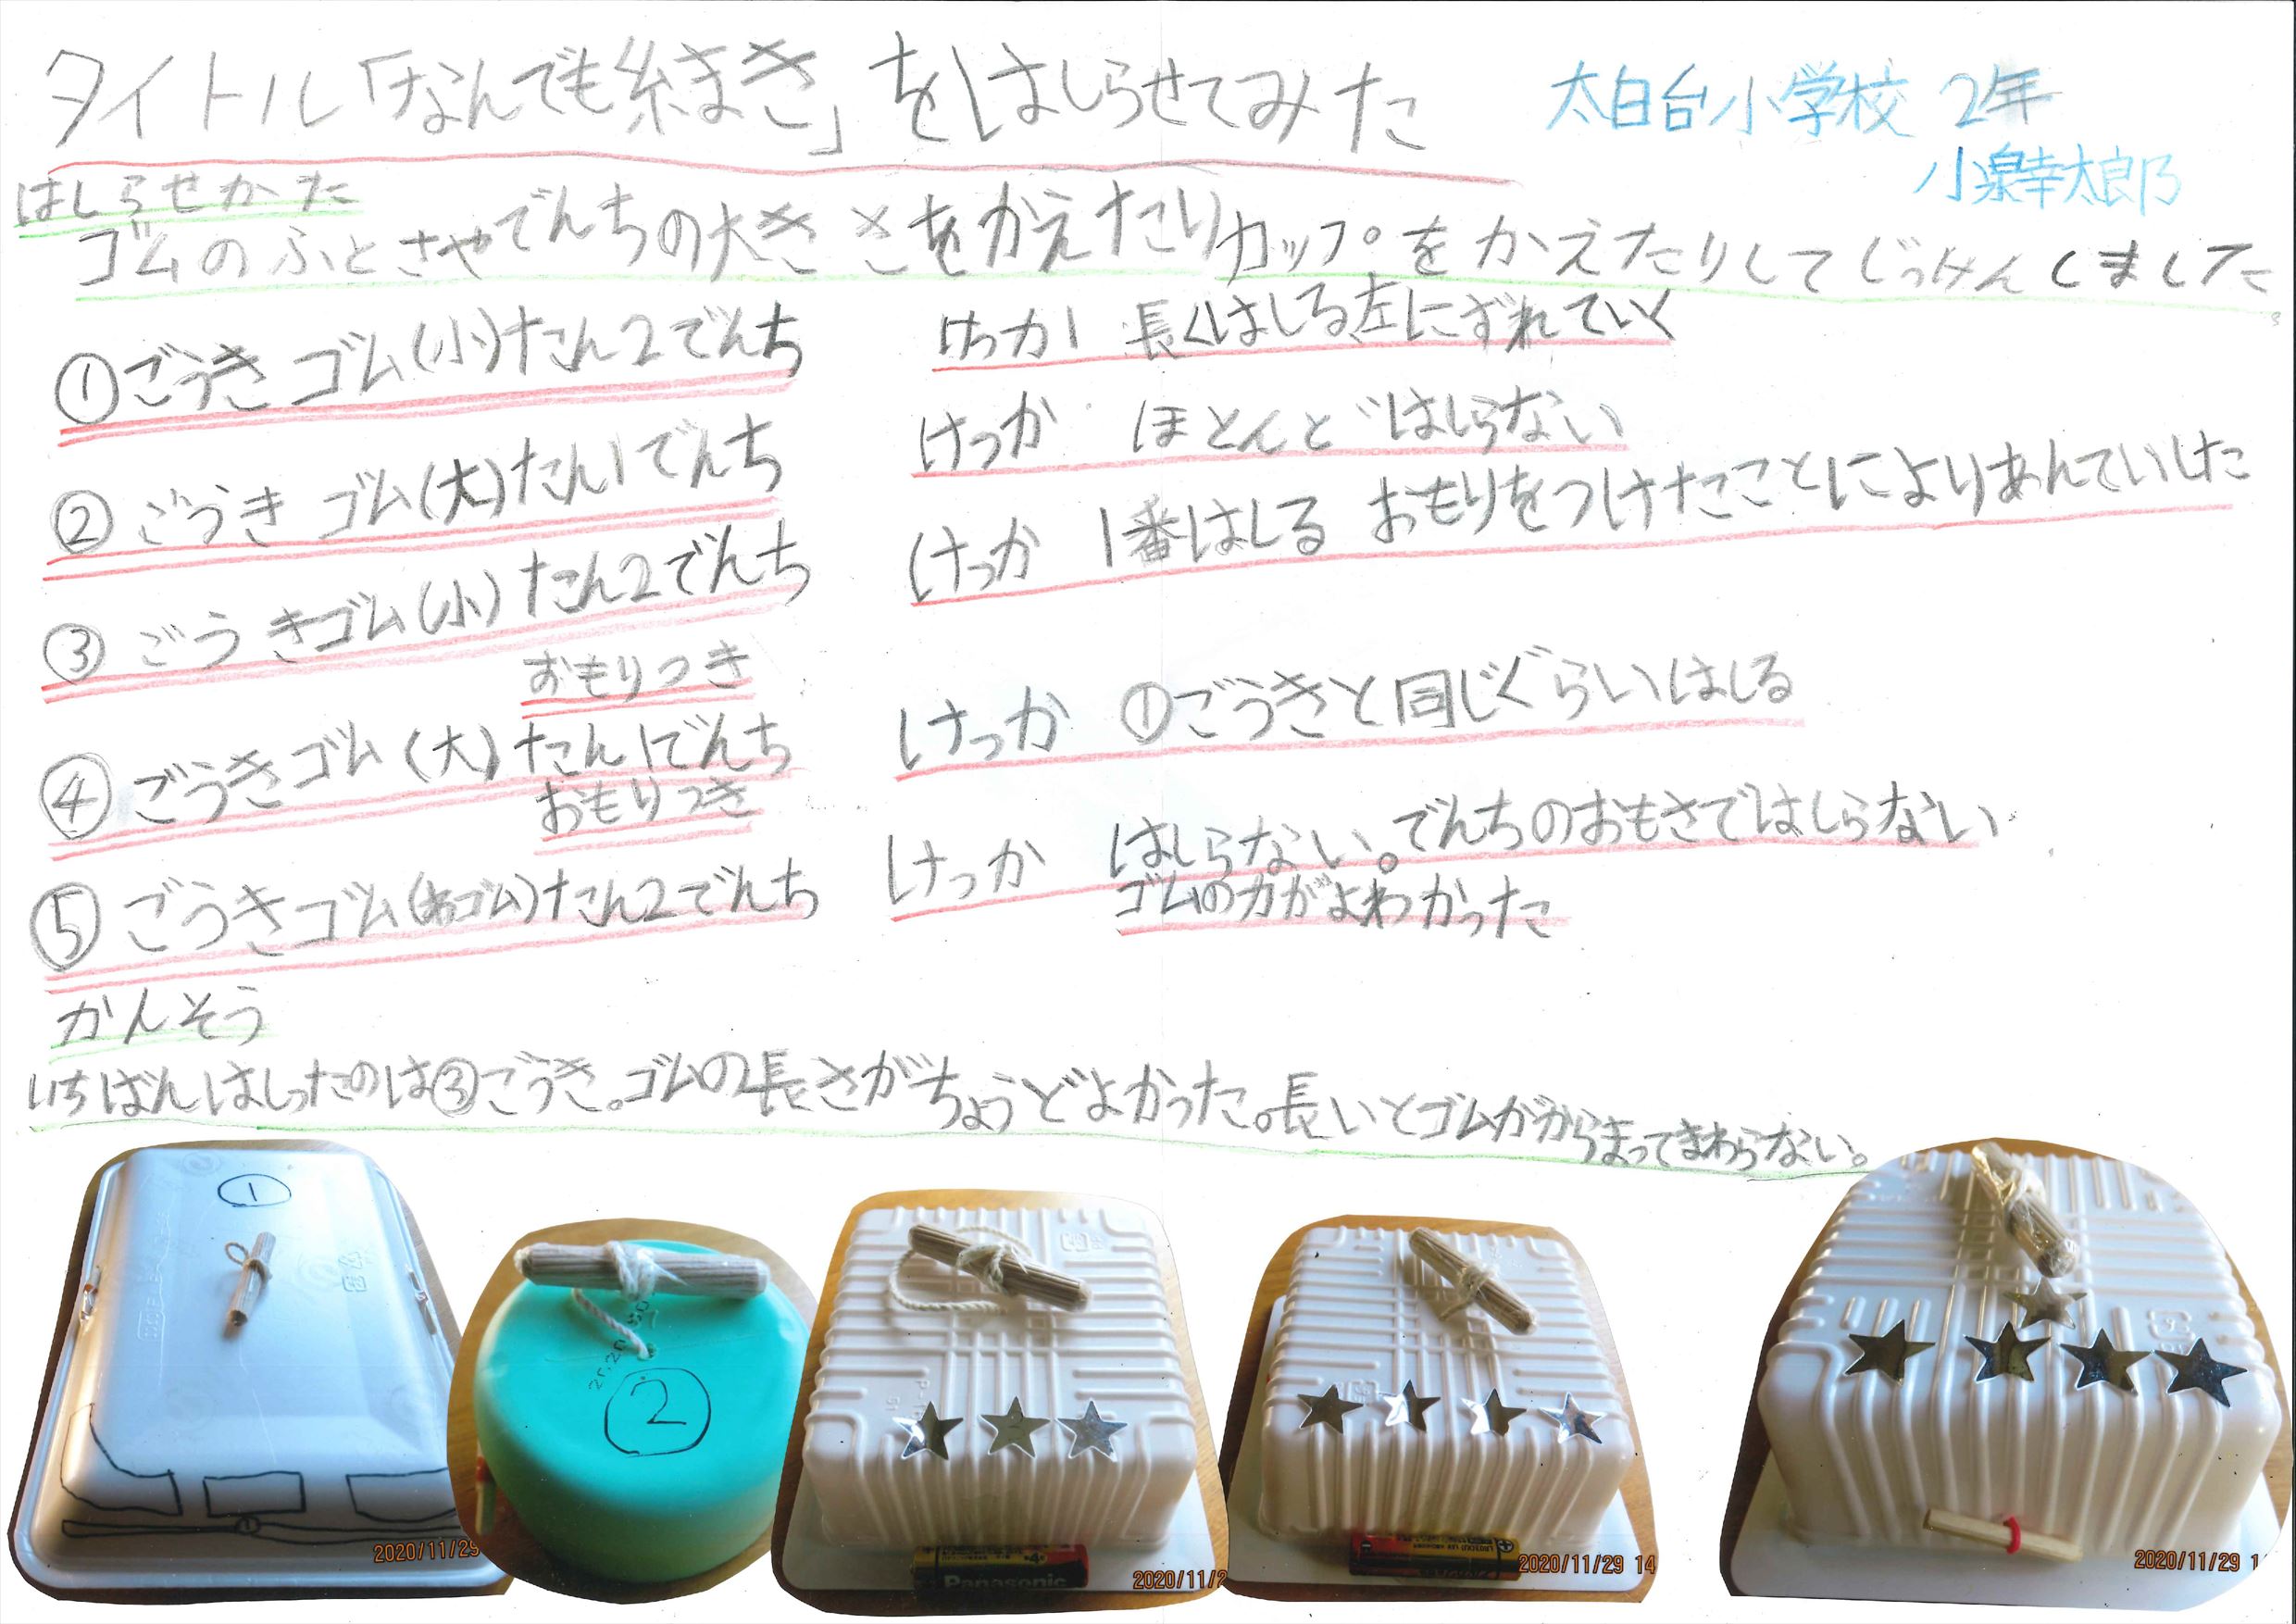 タイトル「なんでも糸まき」をはしらせてみた
太白台小学校 2年
小泉幸太郎
はしらせかた
ゴムのふとさやでんちの大きさをかえたりカップをかえたりしてじっけんしました
①ごうき ゴム(小)たん2でんち
けっか1 長くはしる左にずれていく
②ごうき ゴム(大)たん1でんち
けっか ほとんどはしらない
③ごうきゴム(小)たん2でんち
おもりつき
けっか 1番はしる おもりをつけたことによりあんていした
④ごうきゴム(大)たん1でんち
おもりつき
けっか ①ごうきと同じぐらいはしる
⑤ごうきゴム(わゴム)たん2でんち
けっか はしらない。でんちのおもさではしらない
ゴムの力がよわかった
かんそう
いちばんはしったのは③ごうき。ゴムの長さがちょうどよかった。長いとゴムががらまってまわらない。
①
②
1
2020/11/29
Panasonic
2020/11/2
2020/11/29 14
2020/11/29 1